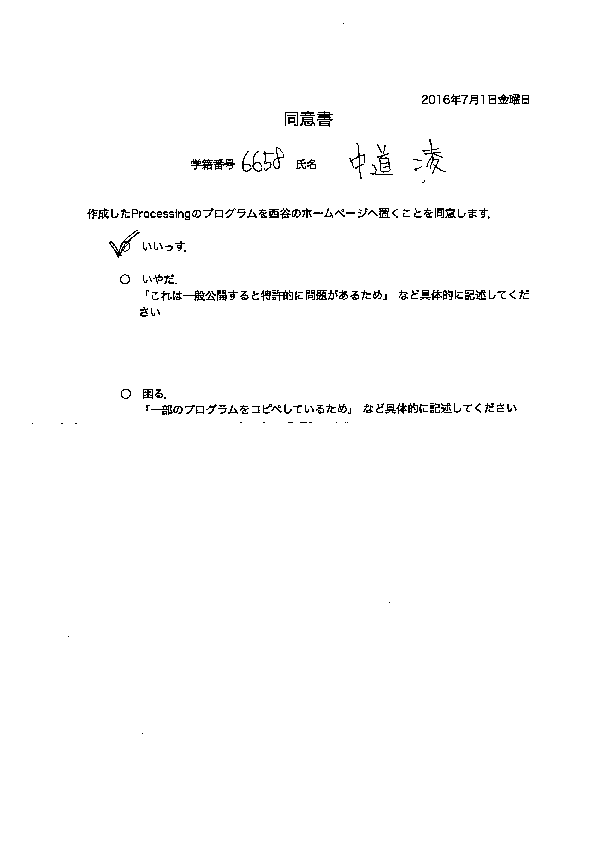 2016年7月1日金曜日
同意書
学籍番号 6658 氏名 中道 凌
作成したProcessingのプログラムを西谷のホームページへ置くことを同意します.
いいっす.
○ いやだ.
「これは一般公開すると特許的に問題があるため」 など具体的に記述してくだ
さい
○ 困る.
「一部のプログラムをコピペしているため」 など具体的に記述してください